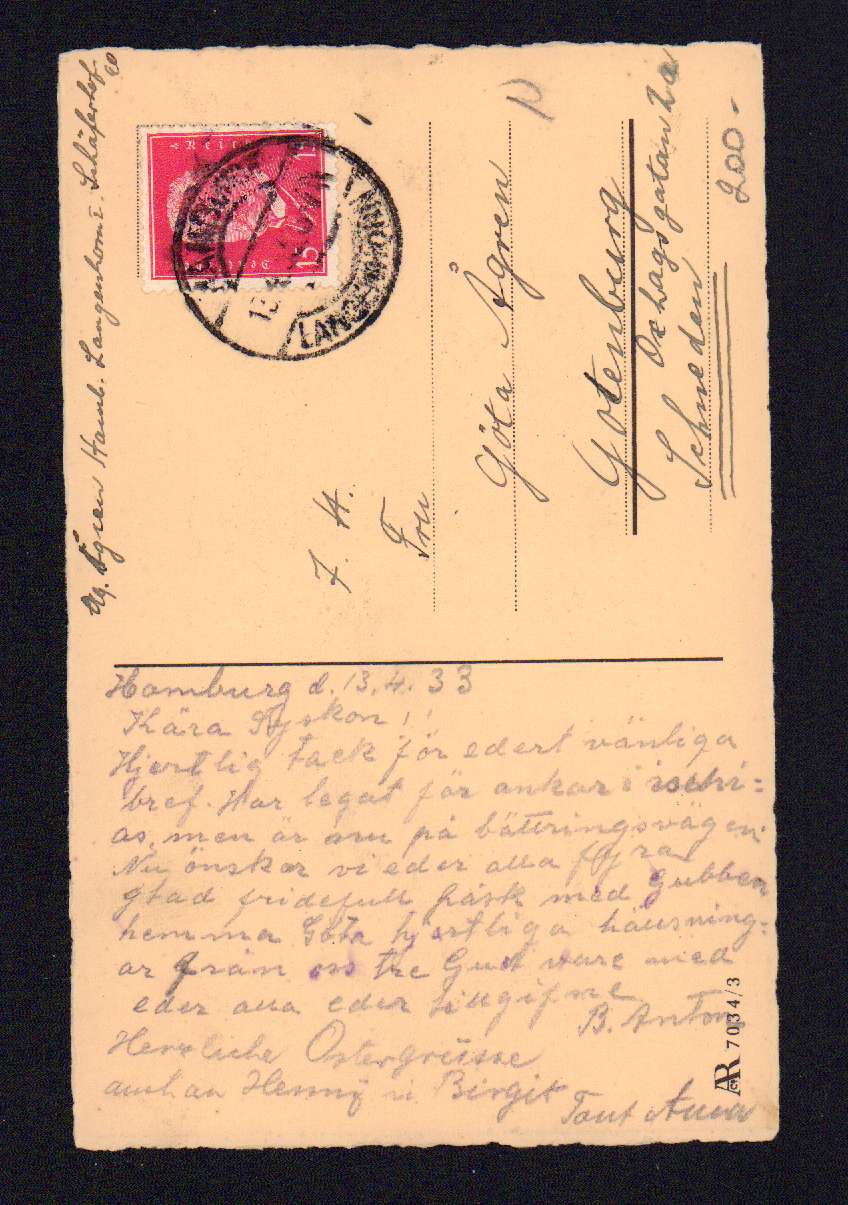 Ag. Ågren Hamb. Langenhorn i. Schäferhof
60
15
LANGENHORN
F. H.
Fru
Göta Ågren
Gotenburg
Oxhagsgatan 2a
Schweden
200-
Hamburg d. 13.4.33
Kära Syskon!!
Hjertlig tack för edert vänliga
bref. Har legat för ankar i ischi=
as, men är nu på bättringsvägen
Nu önskar vi eder alla fyra
glad fridefull påsk med Gubben
hemma Göta hjertliga häusning=
ar från oss tre Gud vare med
eder alla eder tillgifne
B. Anton
Herzliche Ostergrüsse
auch an Henny u. Birgit
Tant Anna
AR 7034/3